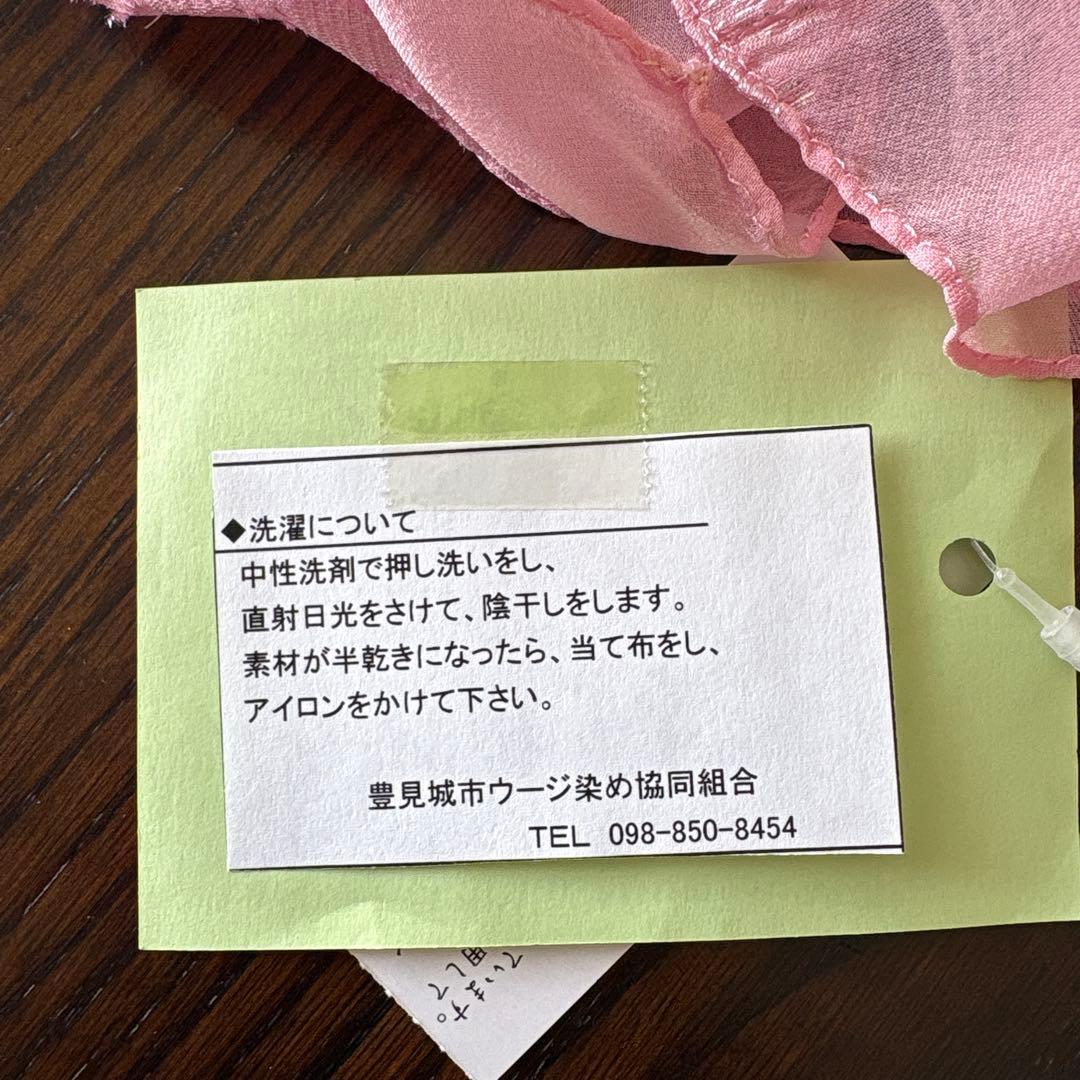 ◆洗濯について
中性洗剤で押し洗いをし、
直射日光をさけて、陰干しをします。
素材が半乾きになったら、当て布をし、
アイロンをかけて下さい。
豊見城市ウージ染め協同組合
TEL 098-850-8454
ています。
用して